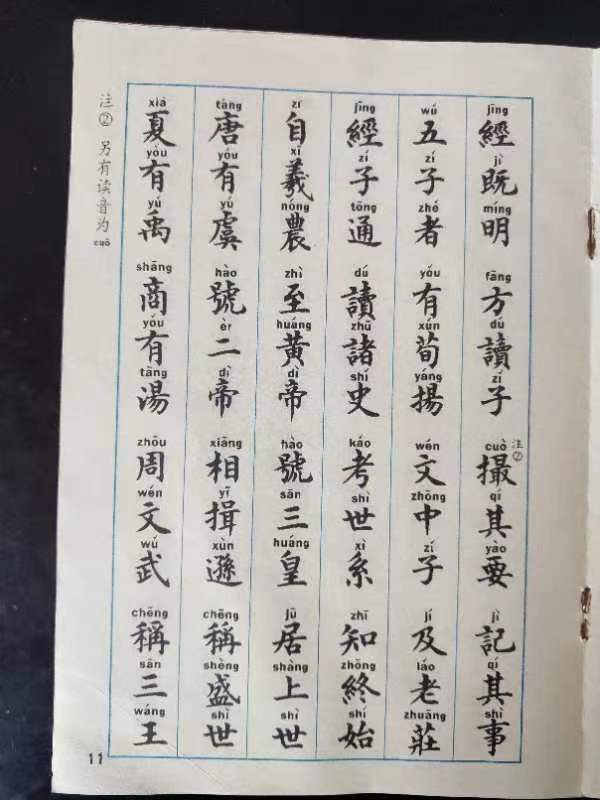 jīng jì míng fāng dú zǐ cuò qí yào jì qí shì
經既明 方讀子 撮注②其要 記其事
wǔ zǐ zhě yǒu xún yáng wén zhōng zǐ jí lǎo zhuāng
五子者 有荀揚 文中子 及老莊
jīng zǐ tōng dú zhū shǐ kǎo shì xì zhī zhōng shǐ
經子通 讀諸史 考世系 知終始
zì xī nóng zhì huáng dì hào sān huáng jū shàng shì
自羲農 至黃帝 號三皇 居上世
táng yǒu yú hào èr dì xiāng yī xùn chēng shèng shì
唐有虞 號二帝 相揖遜 稱盛世
xià yǒu yǔ shāng yǒu tāng zhōu wén wǔ chēng sān wáng
夏有禹 商有湯 周文武 稱三王
注② 另有读音为 cuō
11